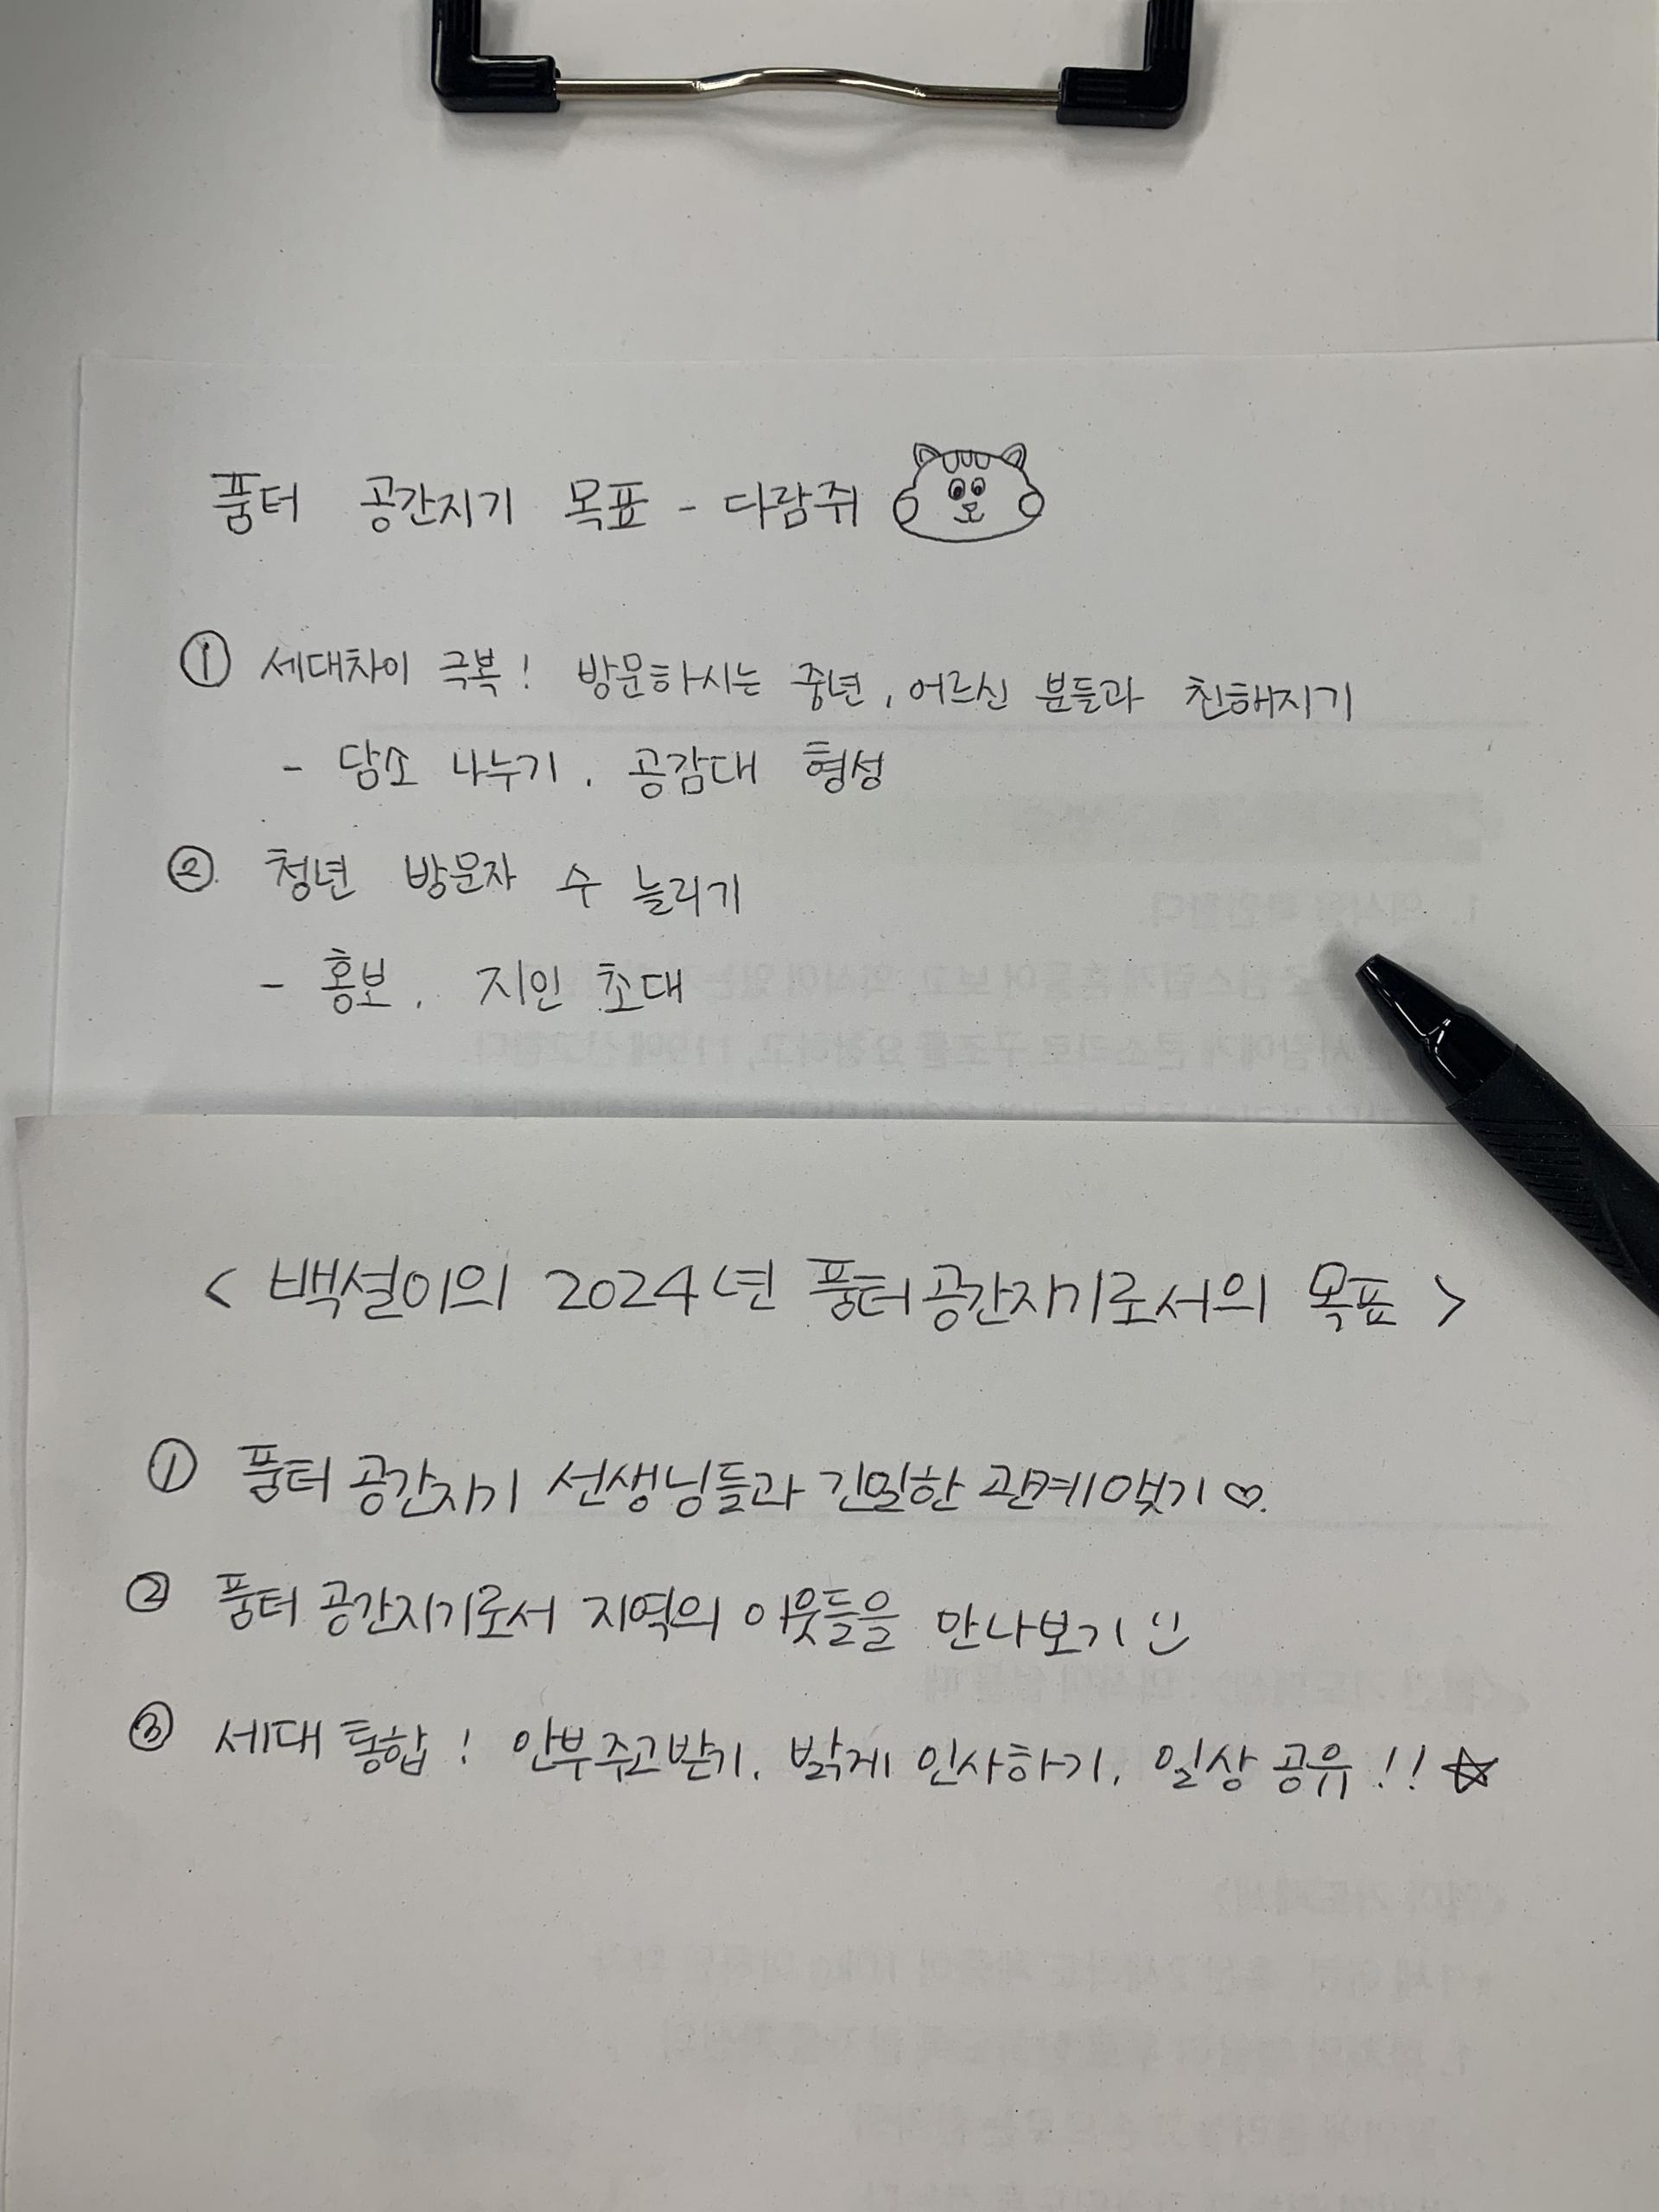 품터 공간지기 목표 - 다람쥐
① 세대차이 극복! 방문하시는 중년, 어르신 분들과 친해지기
- 담소 나누기, 공감대 형성
② 청년 방문자 수 늘리기
- 홍보, 지인 초대
< 백설이의 2024년 품터공간지기로서의 목표 >
① 품터 공간지기 선생님들과 긴밀한 관계맺기 ♡.
② 품터 공간지기로서 지역의 이웃들을 만나보기 :)
③ 세대 통합! 안부주고받기, 밝게 인사하기, 일상 공유!! ☆